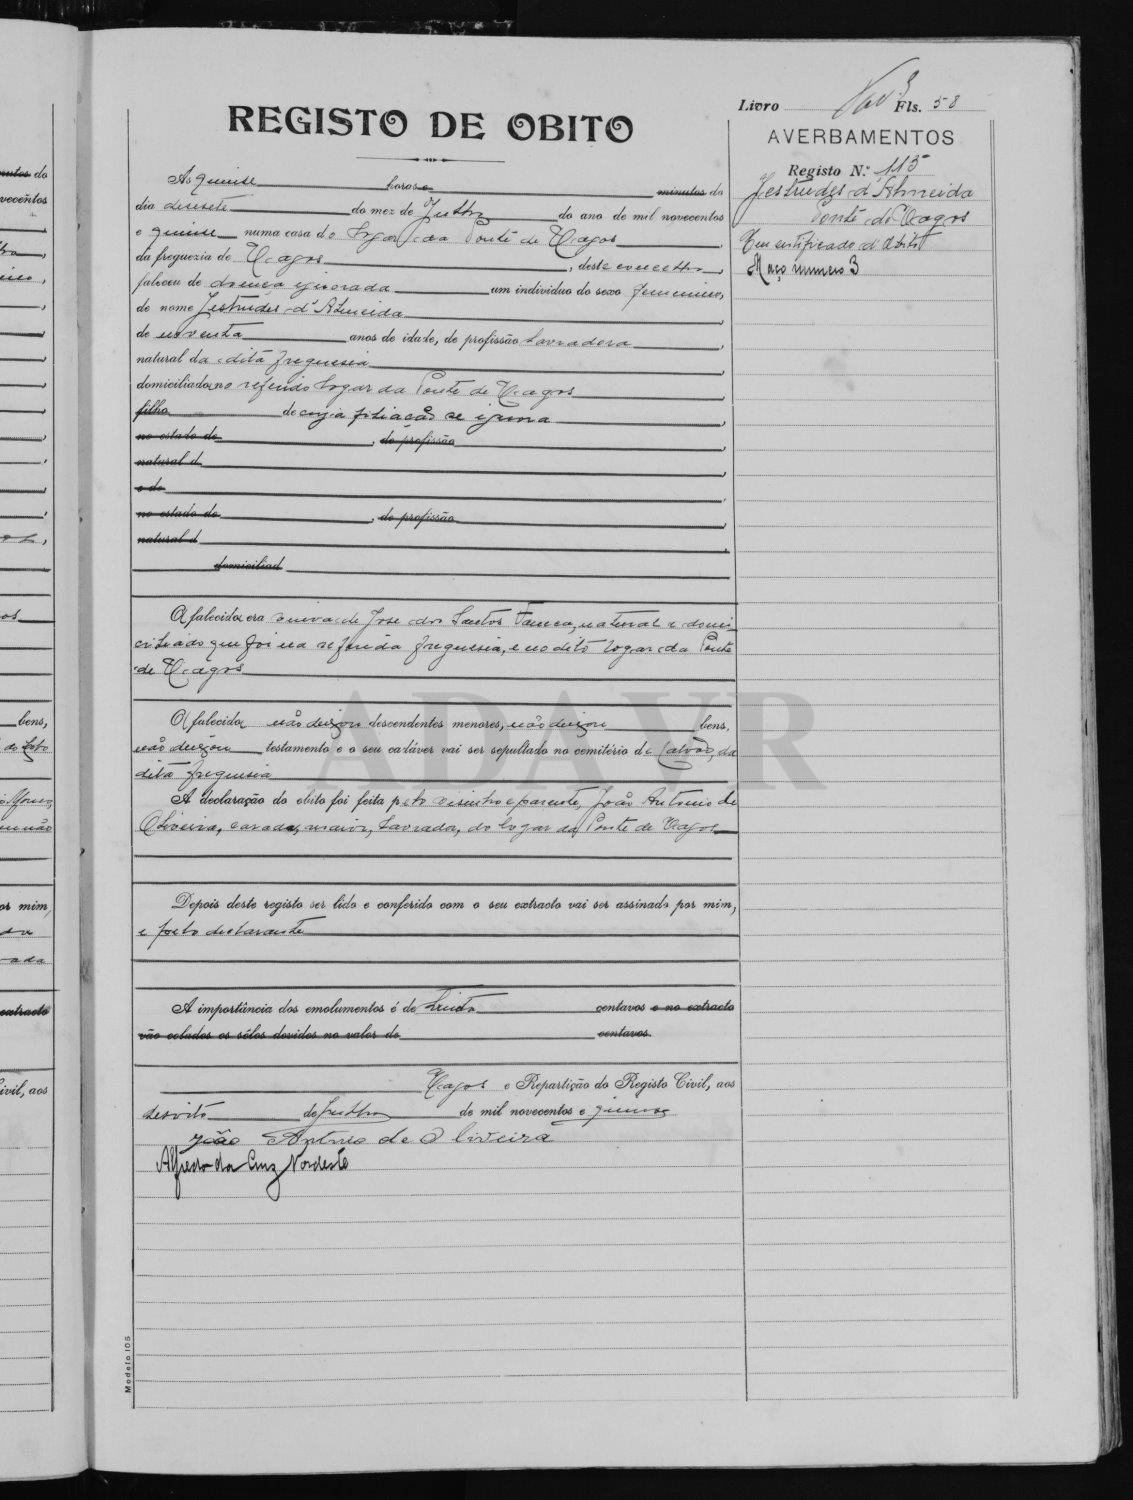 Livro Fls. 58
REGISTO DE OBITO
AVERBAMENTOS
Registo N.º 115
Gestrudes d'Almeida
Ponte de Vagos
Tem certificado d'obito
Maço numero 3
Às quinse horas e minutos do
dia desesete do mez de Julho do ano de mil novecentos
e quinse numa casa do logar da Ponte de Vagos,
da freguezia de Vagos, deste concelho,
faleceu de doença ignorada um individuo do sexo femenino,
de nome Gestrudes d'Almeida,
de noventa anos de idade, de profissão lavradora,
natural da dita freguesia,
domiciliada no referido logar da Ponte de Vagos,
filha de cuja filiação se ignora,
no estado de , de profissão ,
natural d ,
e de ,
no estado de , de profissão ,
natural d ,
domiciliad
A falecida era viuva de José dos Santos natural e domi-
ciliado que foi na referida freguesia, e no dito logar da Ponte
de Vagos
A falecida não deixou descendentes menores, não deixou bens,
não deixou testamento e o seu cadáver vai ser sepultado no cemitério de Calvão, da
dita freguesia
A declaração do obito foi feita pelo visinho e parente, João Antonio de
Oliveira, casado, maior, lavrador, do logar da Ponte de Vagos
Depois deste registo ser lido e conferido com o seu extracto vai ser assinado por mim,
e pelo declarante
A importância dos emolumentos é de trinta centavos e no extracto
vão colados os sêlos devidos no valor de centavos.
Vagos e Repartição do Registo Civil, aos
desoito de Julho de mil novecentos e quinse
João Antonio de Oliveira
Alfredo da Cruz Nordeste
ADAVR
Modelo 105
nutos do
vecentos
bens,
or mim,
extracto
ivil, aos